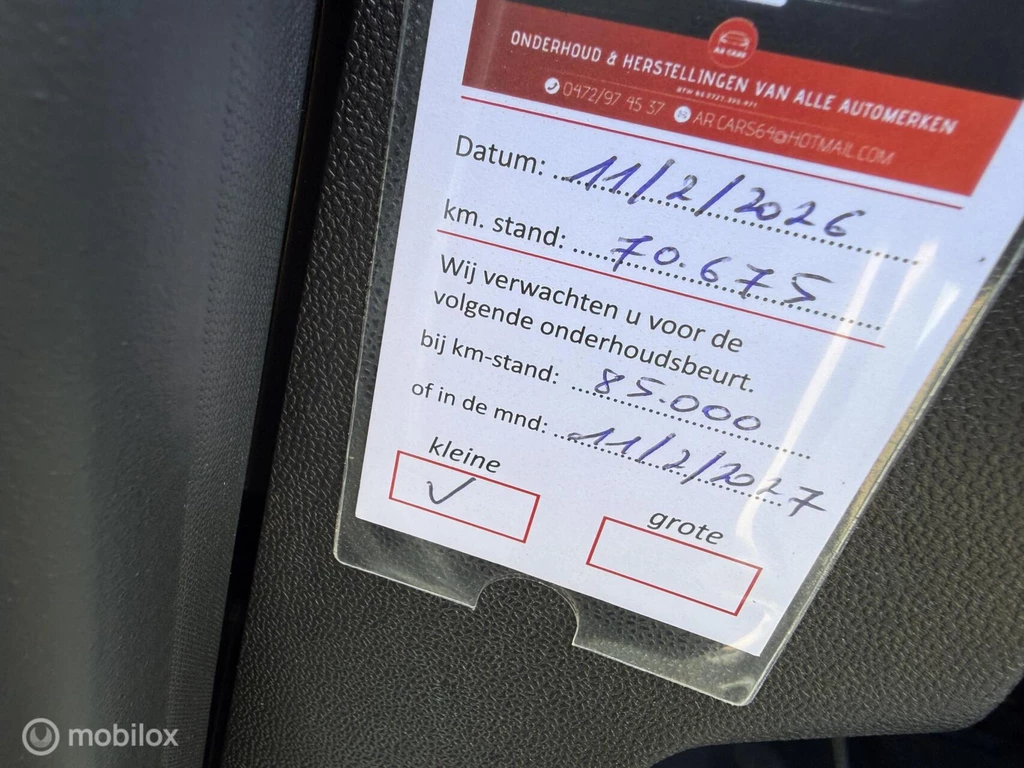 AR CARS
ONDERHOUD & HERSTELLINGEN VAN ALLE AUTOMERKEN
0472/97 45 37 ARCARS64@HOTMAIL.COM
Datum: 11/2/2026
km. stand: 70.675
Wij verwachten u voor de
volgende onderhoudsbeurt.
bij km-stand: 85.000
of in de mnd: 11/2/2027
kleine grote
mobilox